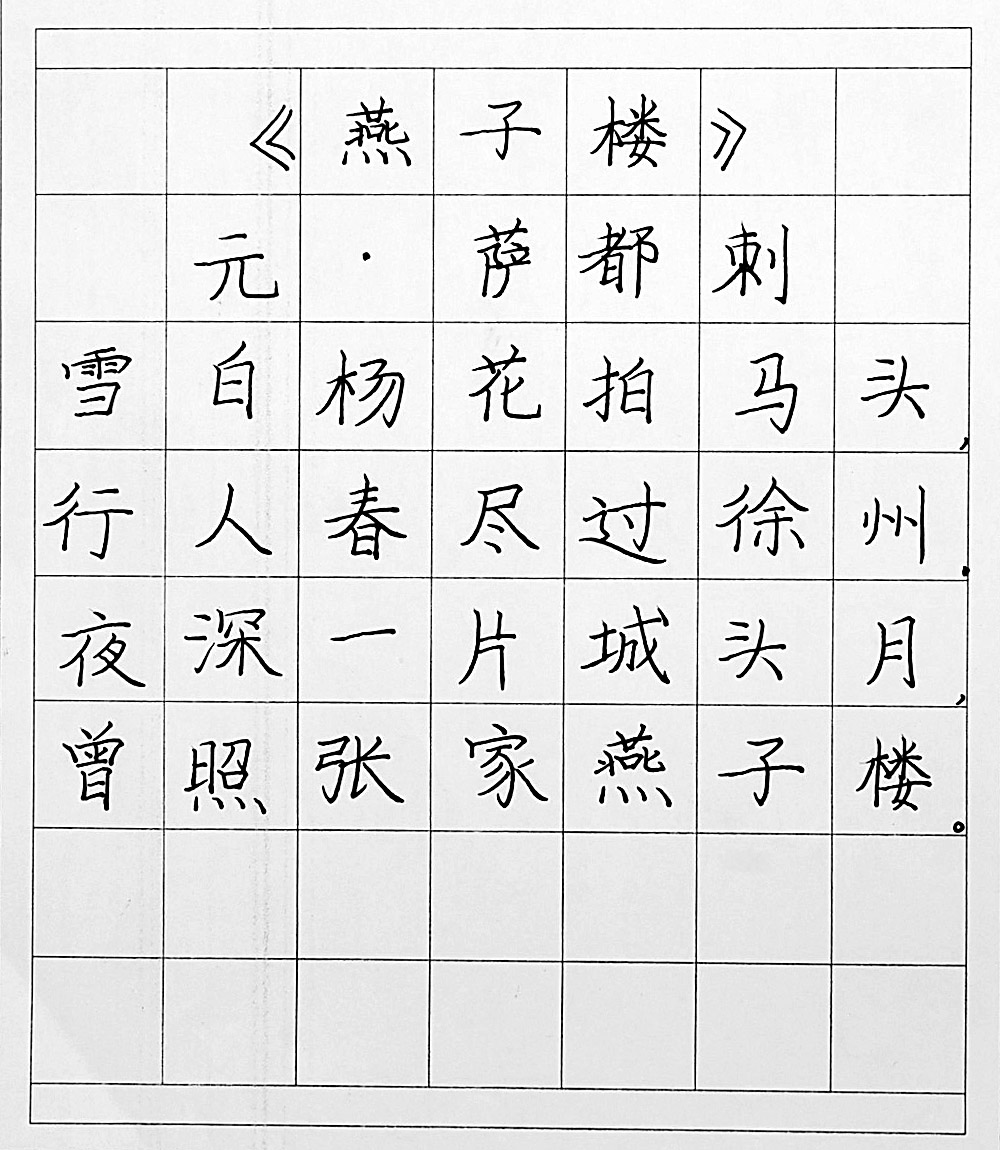 《燕子楼》
元·萨都刺
雪白杨花拍马头，
行人春尽过徐州。
夜深一片城头月，
曾照张家燕子楼。